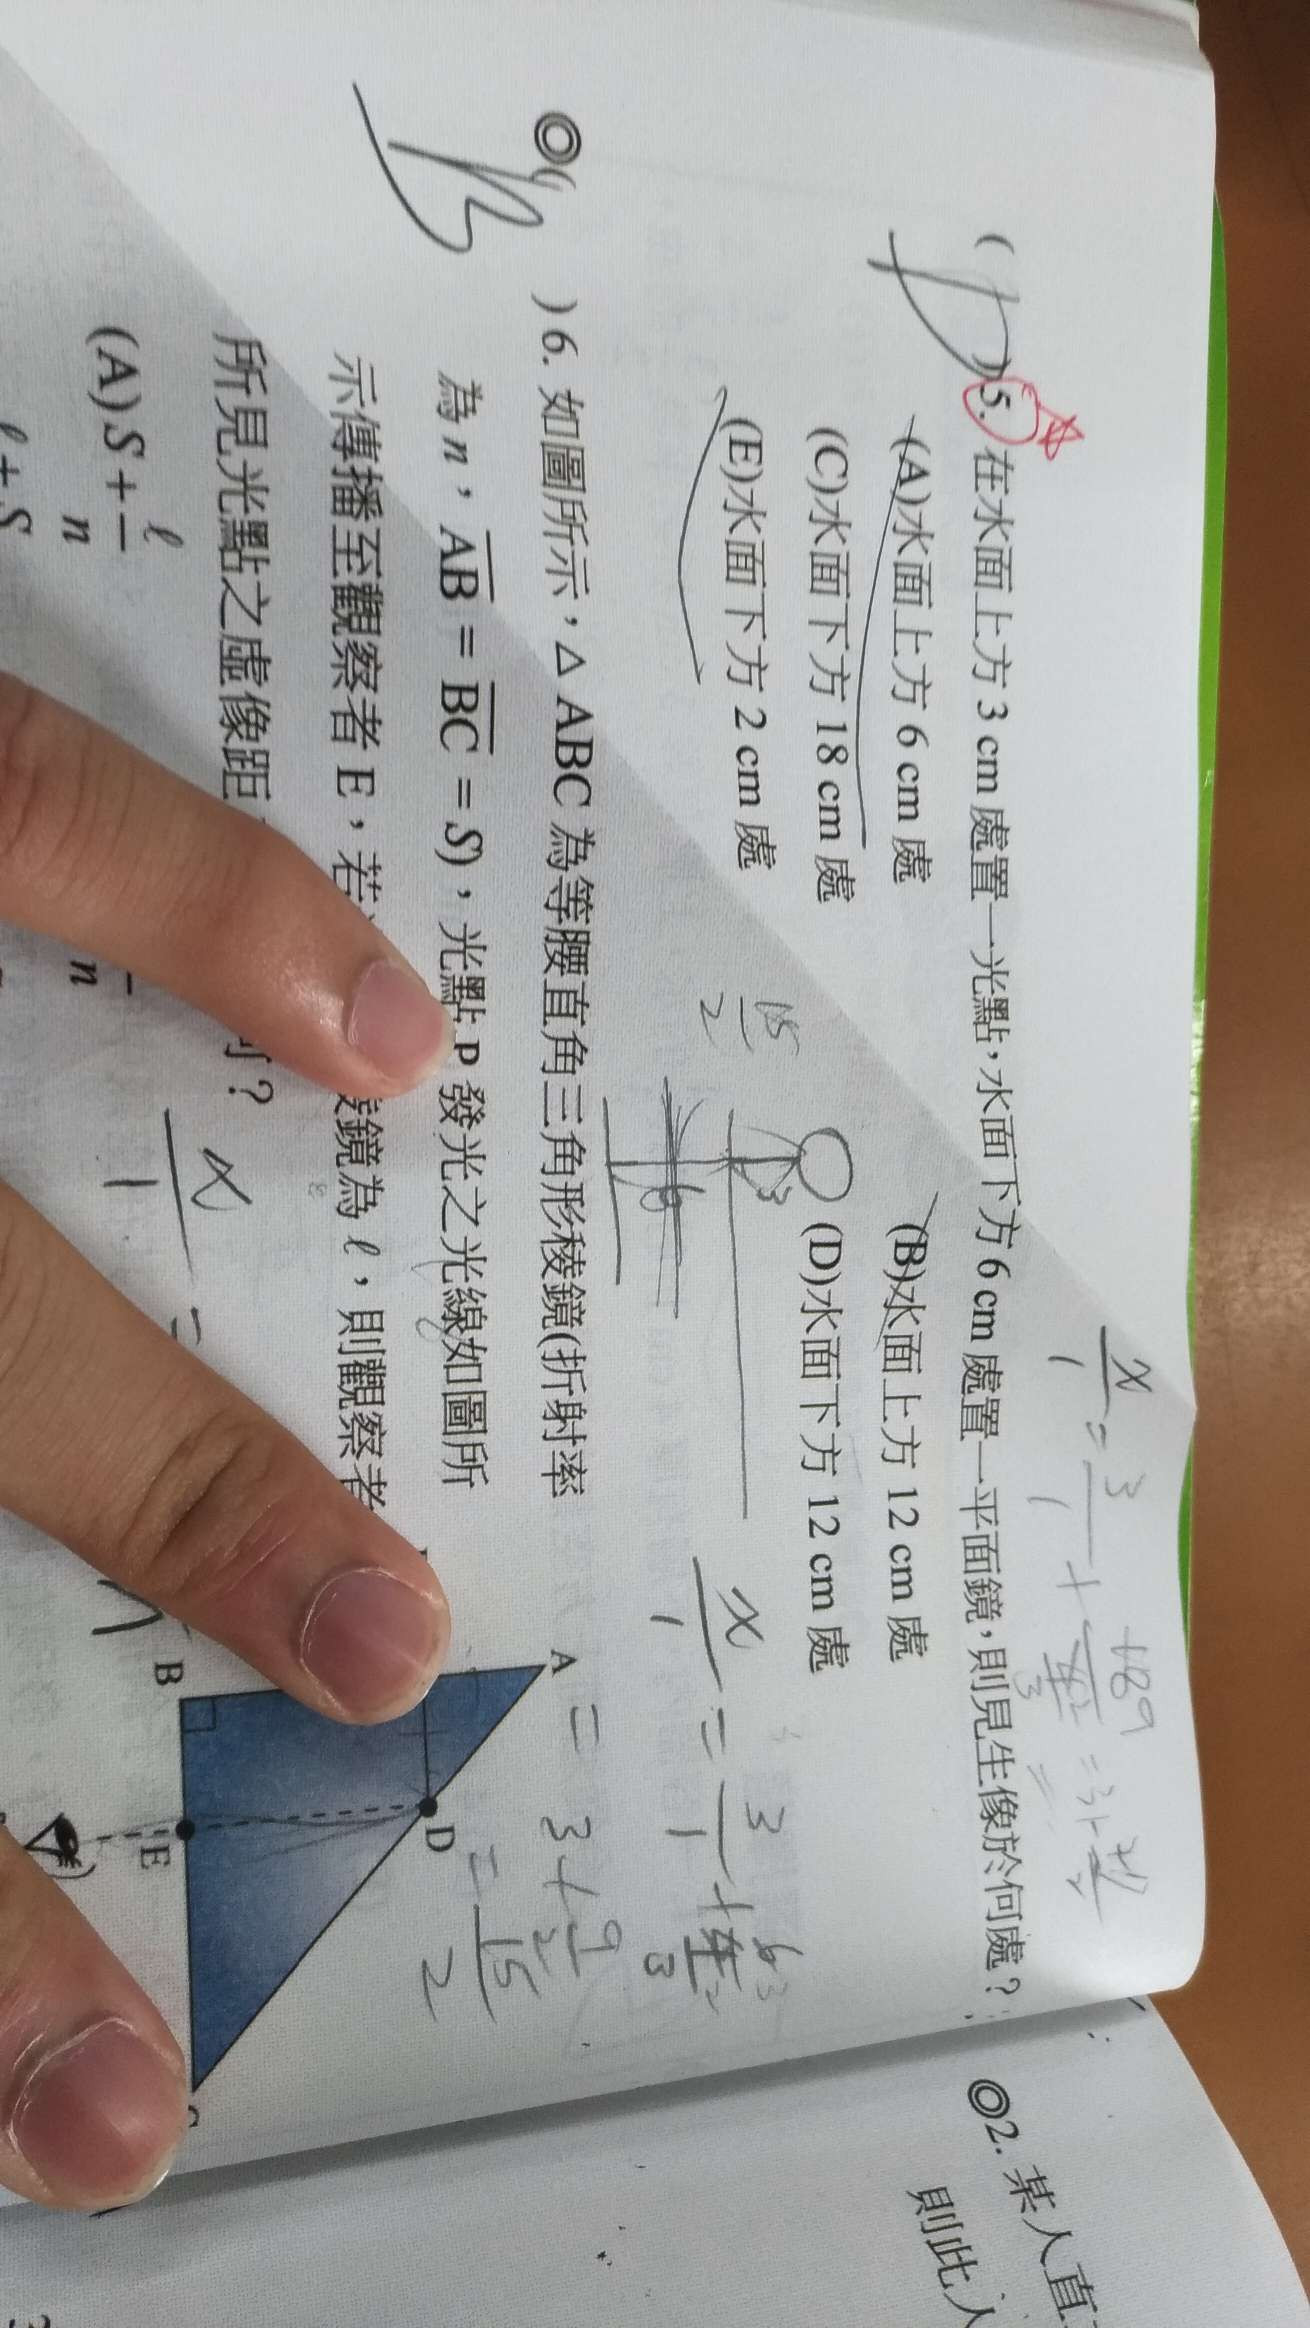 5. 在水面上方 3 cm 處置一光點,水面下方 6 cm 處置一平面鏡,則見生像於何處?
(A)水面上方 6 cm 處 (B)水面上方 12 cm 處
(C)水面下方 18 cm 處 (D)水面下方 12 cm 處
(E)水面下方 2 cm 處
15/2
3
6
x/1 = 3/1 +
= 3 + 9/2
= 15/2
◎( )6. 如圖所示,△ ABC 為等腰直角三角形稜鏡(折射率
為 n,AB = BC = S),光點 P 發光之光線如圖所
示傳播至觀察者 E,若 鏡為 ℓ,則觀察者
所見光點之虛像距 ?
(A)S + ℓ/n
ℓ + S
n
x/1 =
A
B
D
E
◎2. 某人直
則此人